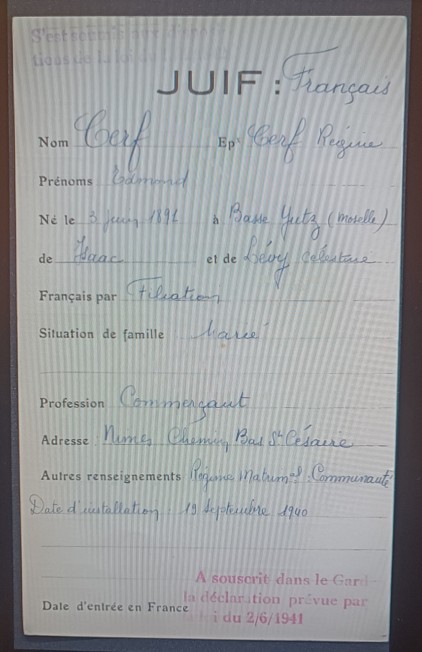 S'est soumis aux disposi
tions de la loi
JUIF : Français
Nom Cerf Ep˟ Cerf Régine
Prénoms Edmond
Né le 3 juin 1891 à Basse Yutz (Moselle)
de Isaac et de Lévy Célestine
Français par Filiation
Situation de famille Marié
Profession Commerçant
Adresse Nimes Chemin Bas St Césaire
Autres renseignements Régime Matrimal : Communauté
Date d'installation : 19 Septembre 1940
A souscrit dans le Gard
la déclaration prévue par
loi du 2/6/1941
Date d'entrée en France